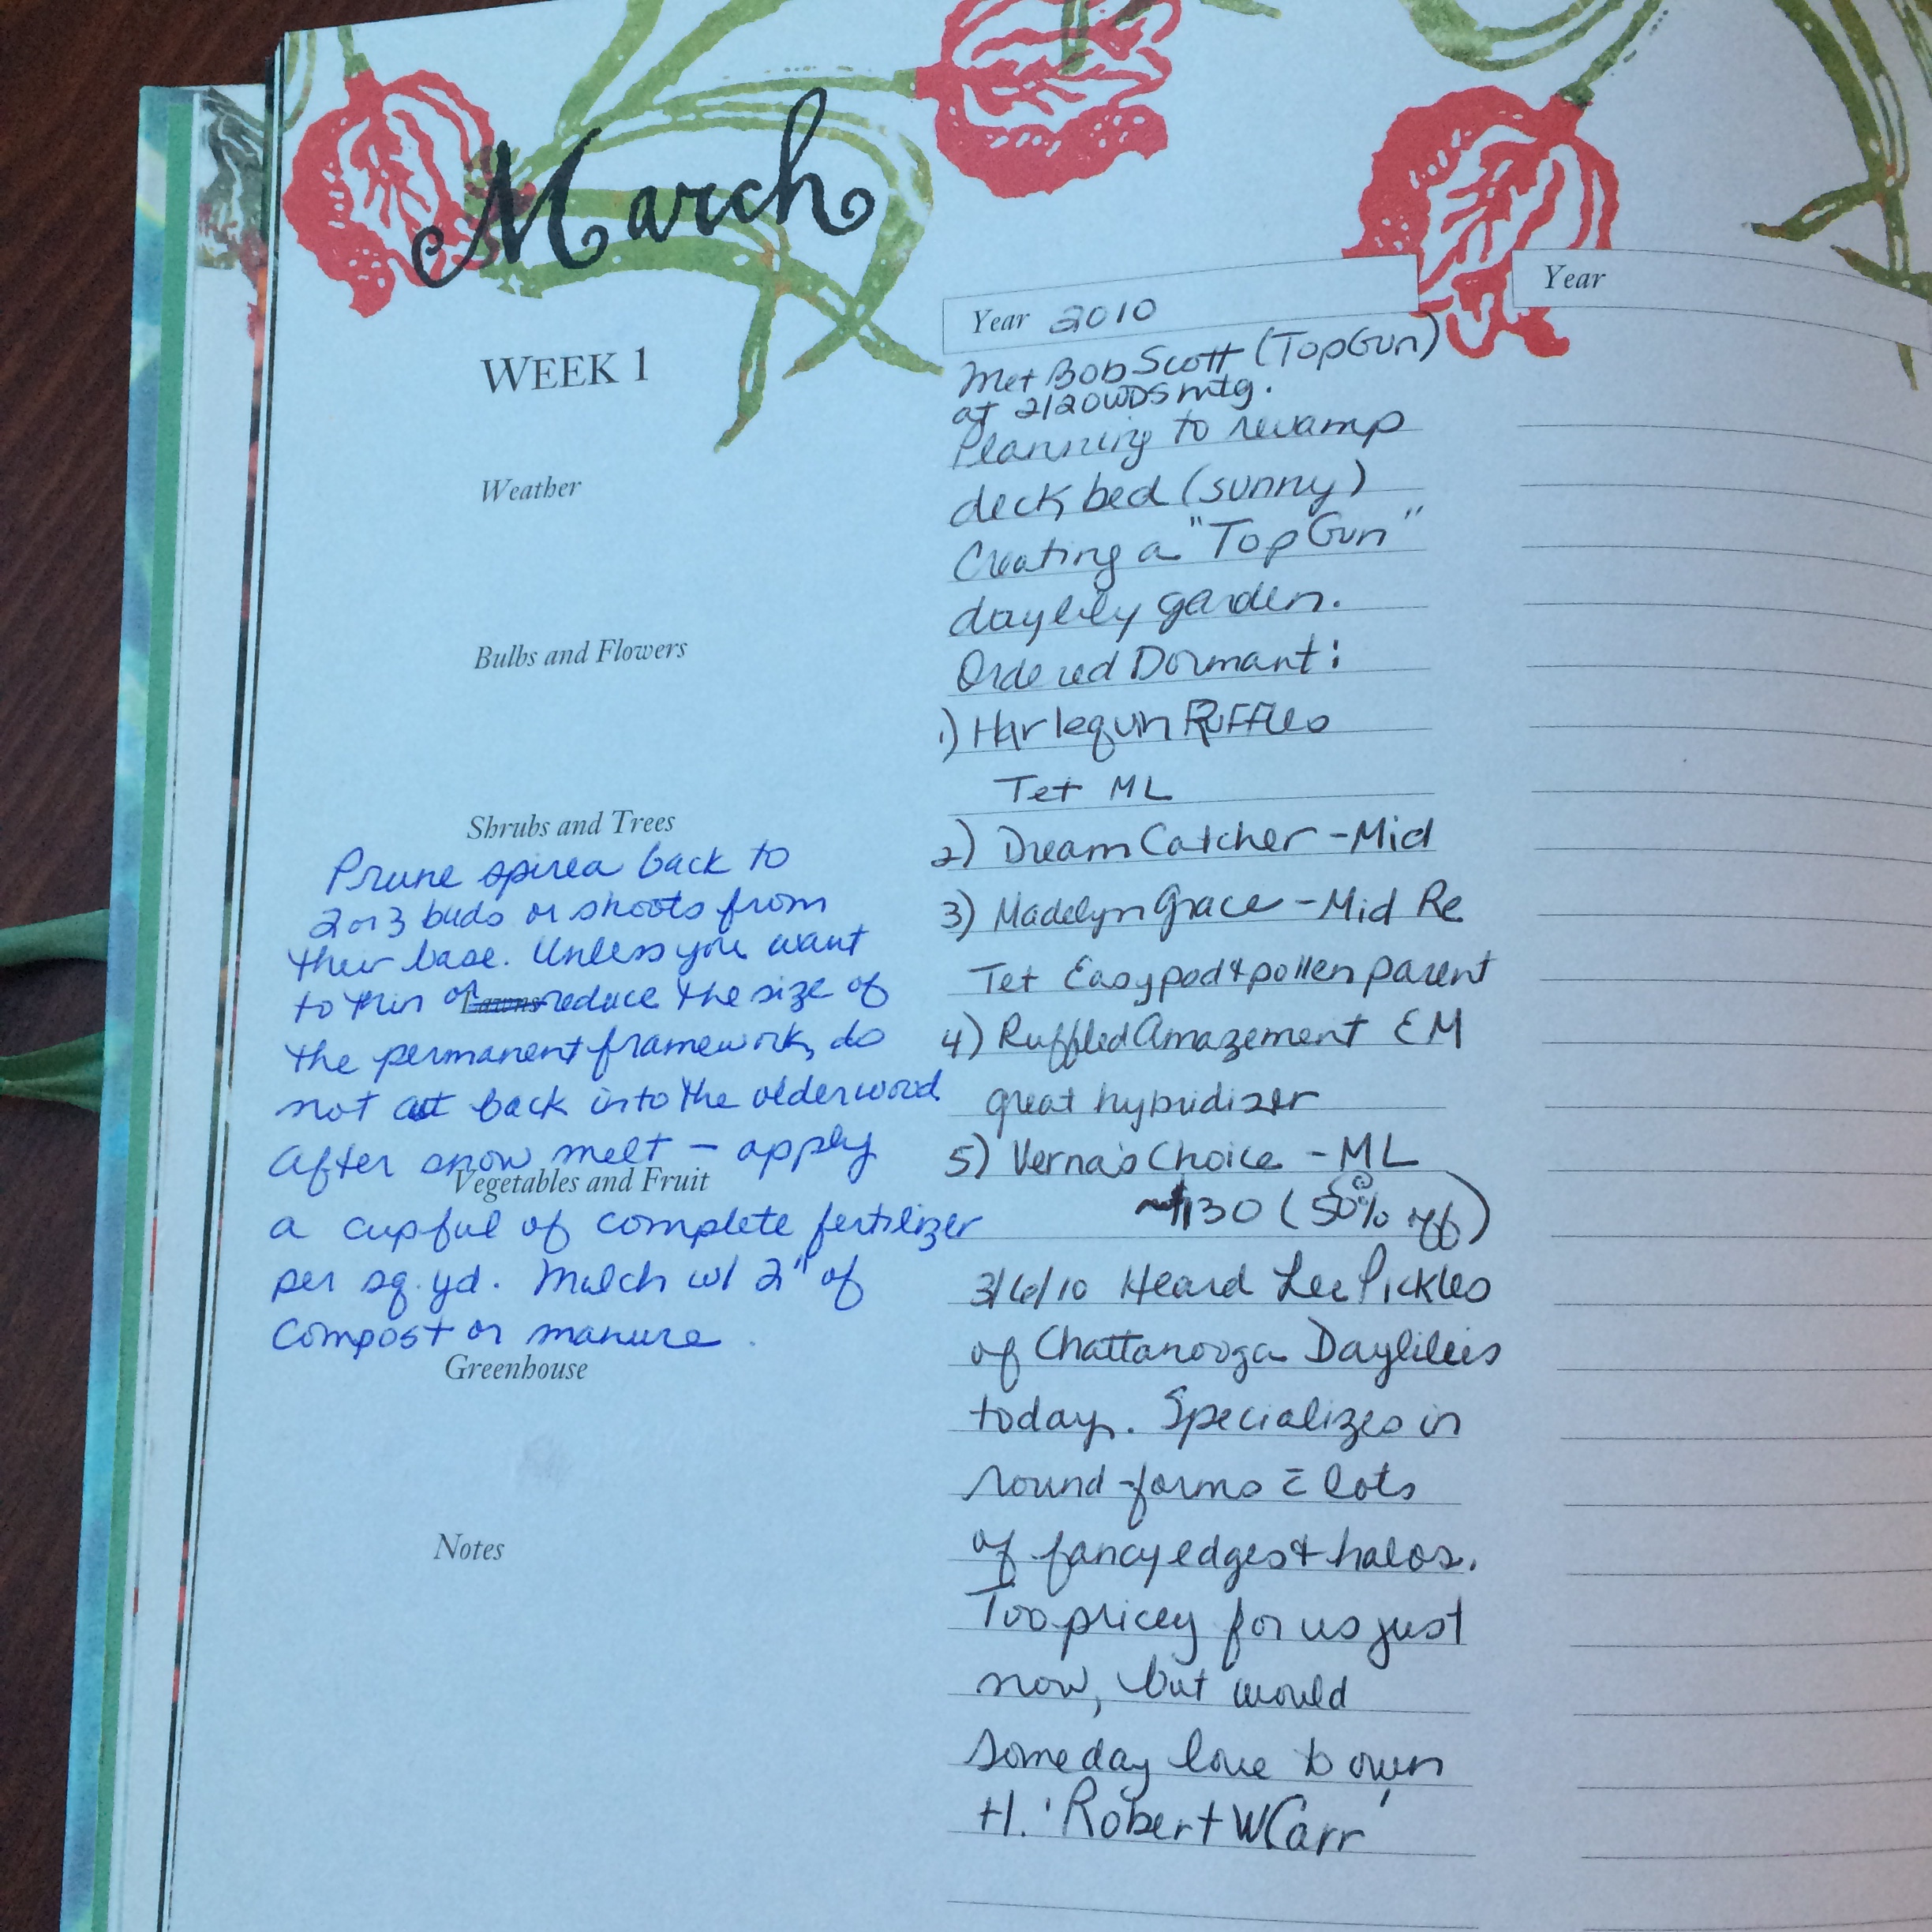 March
WEEK 1
Weather
Bulbs and Flowers
Shrubs and Trees
Prune spirea back to
2 or 3 buds or shoots from
their base. Unless you want
to thin or Lawns reduce the size of
the permanent framework, do
not cut back into the older wood
After snow melt – apply
Vegetables and Fruit
a cupful of complete fertilizer
per sq. yd. Mulch w/ 2" of
Compost or manure.
Greenhouse
Notes
Year 2010
Met Bob Scott (Top Gun)
at 2/20 WDS mtg.
Planning to revamp
deck bed (sunny)
Creating a "Top Gun"
daylily garden.
Ordered Dormant:
1) Harlequin Ruffles
Tet ML
2) Dream Catcher - Mid
3) Madelyn Grace - Mid Re
Tet Easy pod & pollen parent
4) Ruffled Amazement EM
great hybridizer
5) Verna's Choice - ML
~$130 (50% off)
3/6/10 Heard Lee Pickles
of Chattanooga Daylilies
today. Specializes in
round forms c̄ lots
of fancy edges & halos.
Too pricey for us just
now, but would
someday love to own
H. 'Robert W Carr'
Year